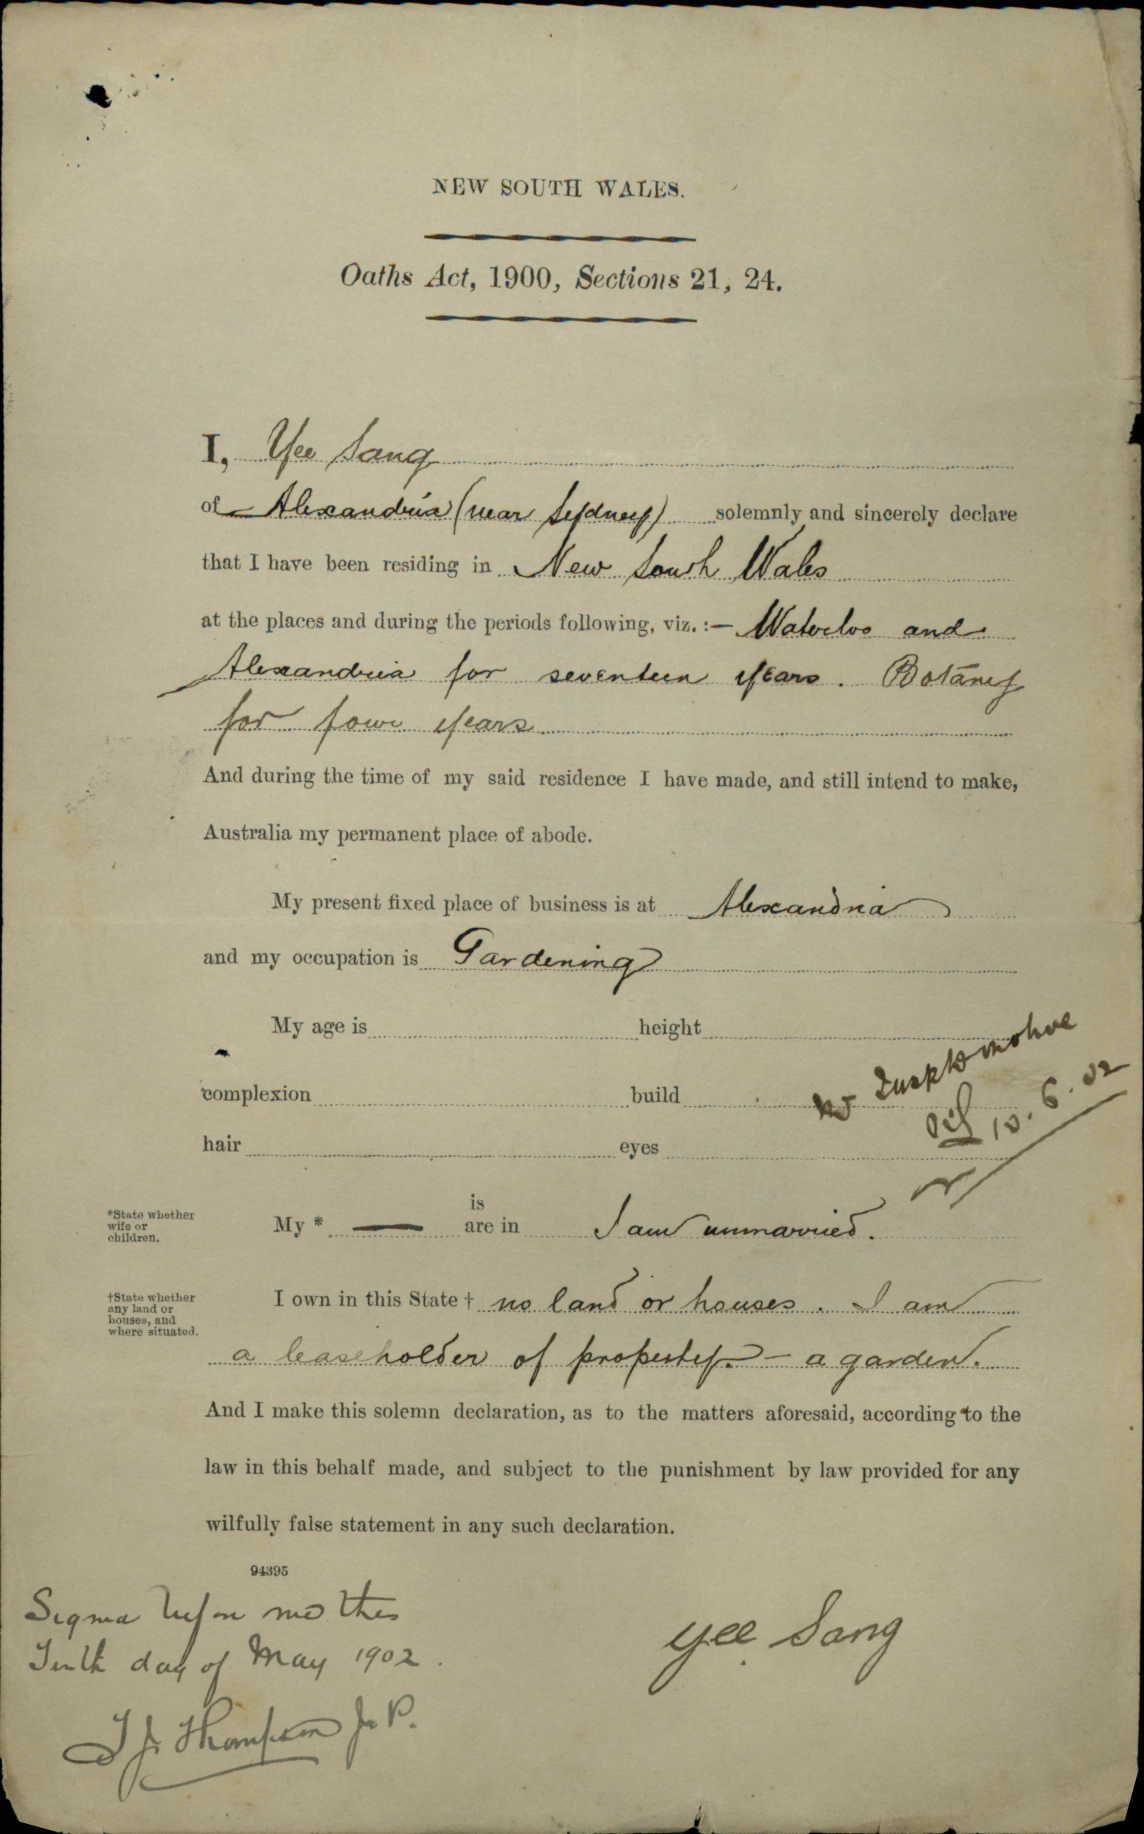 NEW SOUTH WALES.
Oaths Act, 1900, Sections 21, 24.
I, Yee Sang
of Alexandria (near Sydney) solemnly and sincerely declare
that I have been residing in New South Wales
at the places and during the periods following, viz. :— Waterloo and
Alexandria for seventeen years. Botany
for four years
And during the time of my said residence I have made, and still intend to make,
Australia my permanent place of abode.
My present fixed place of business is at Alexandria
and my occupation is Gardening
My age is height
complexion build
hair eyes
10.6.02
*State whether
wife or
children.
My * — is
are in I am unmarried.
†State whether
any land or
houses, and
where situated.
I own in this State † no land or houses. I am
a leaseholder of property — a garden.
And I make this solemn declaration, as to the matters aforesaid, according to the
law in this behalf made, and subject to the punishment by law provided for any
wilfully false statement in any such declaration.
94395
me this
Tenth day of May 1902.
Yee Sang
T J Thompson J.P.